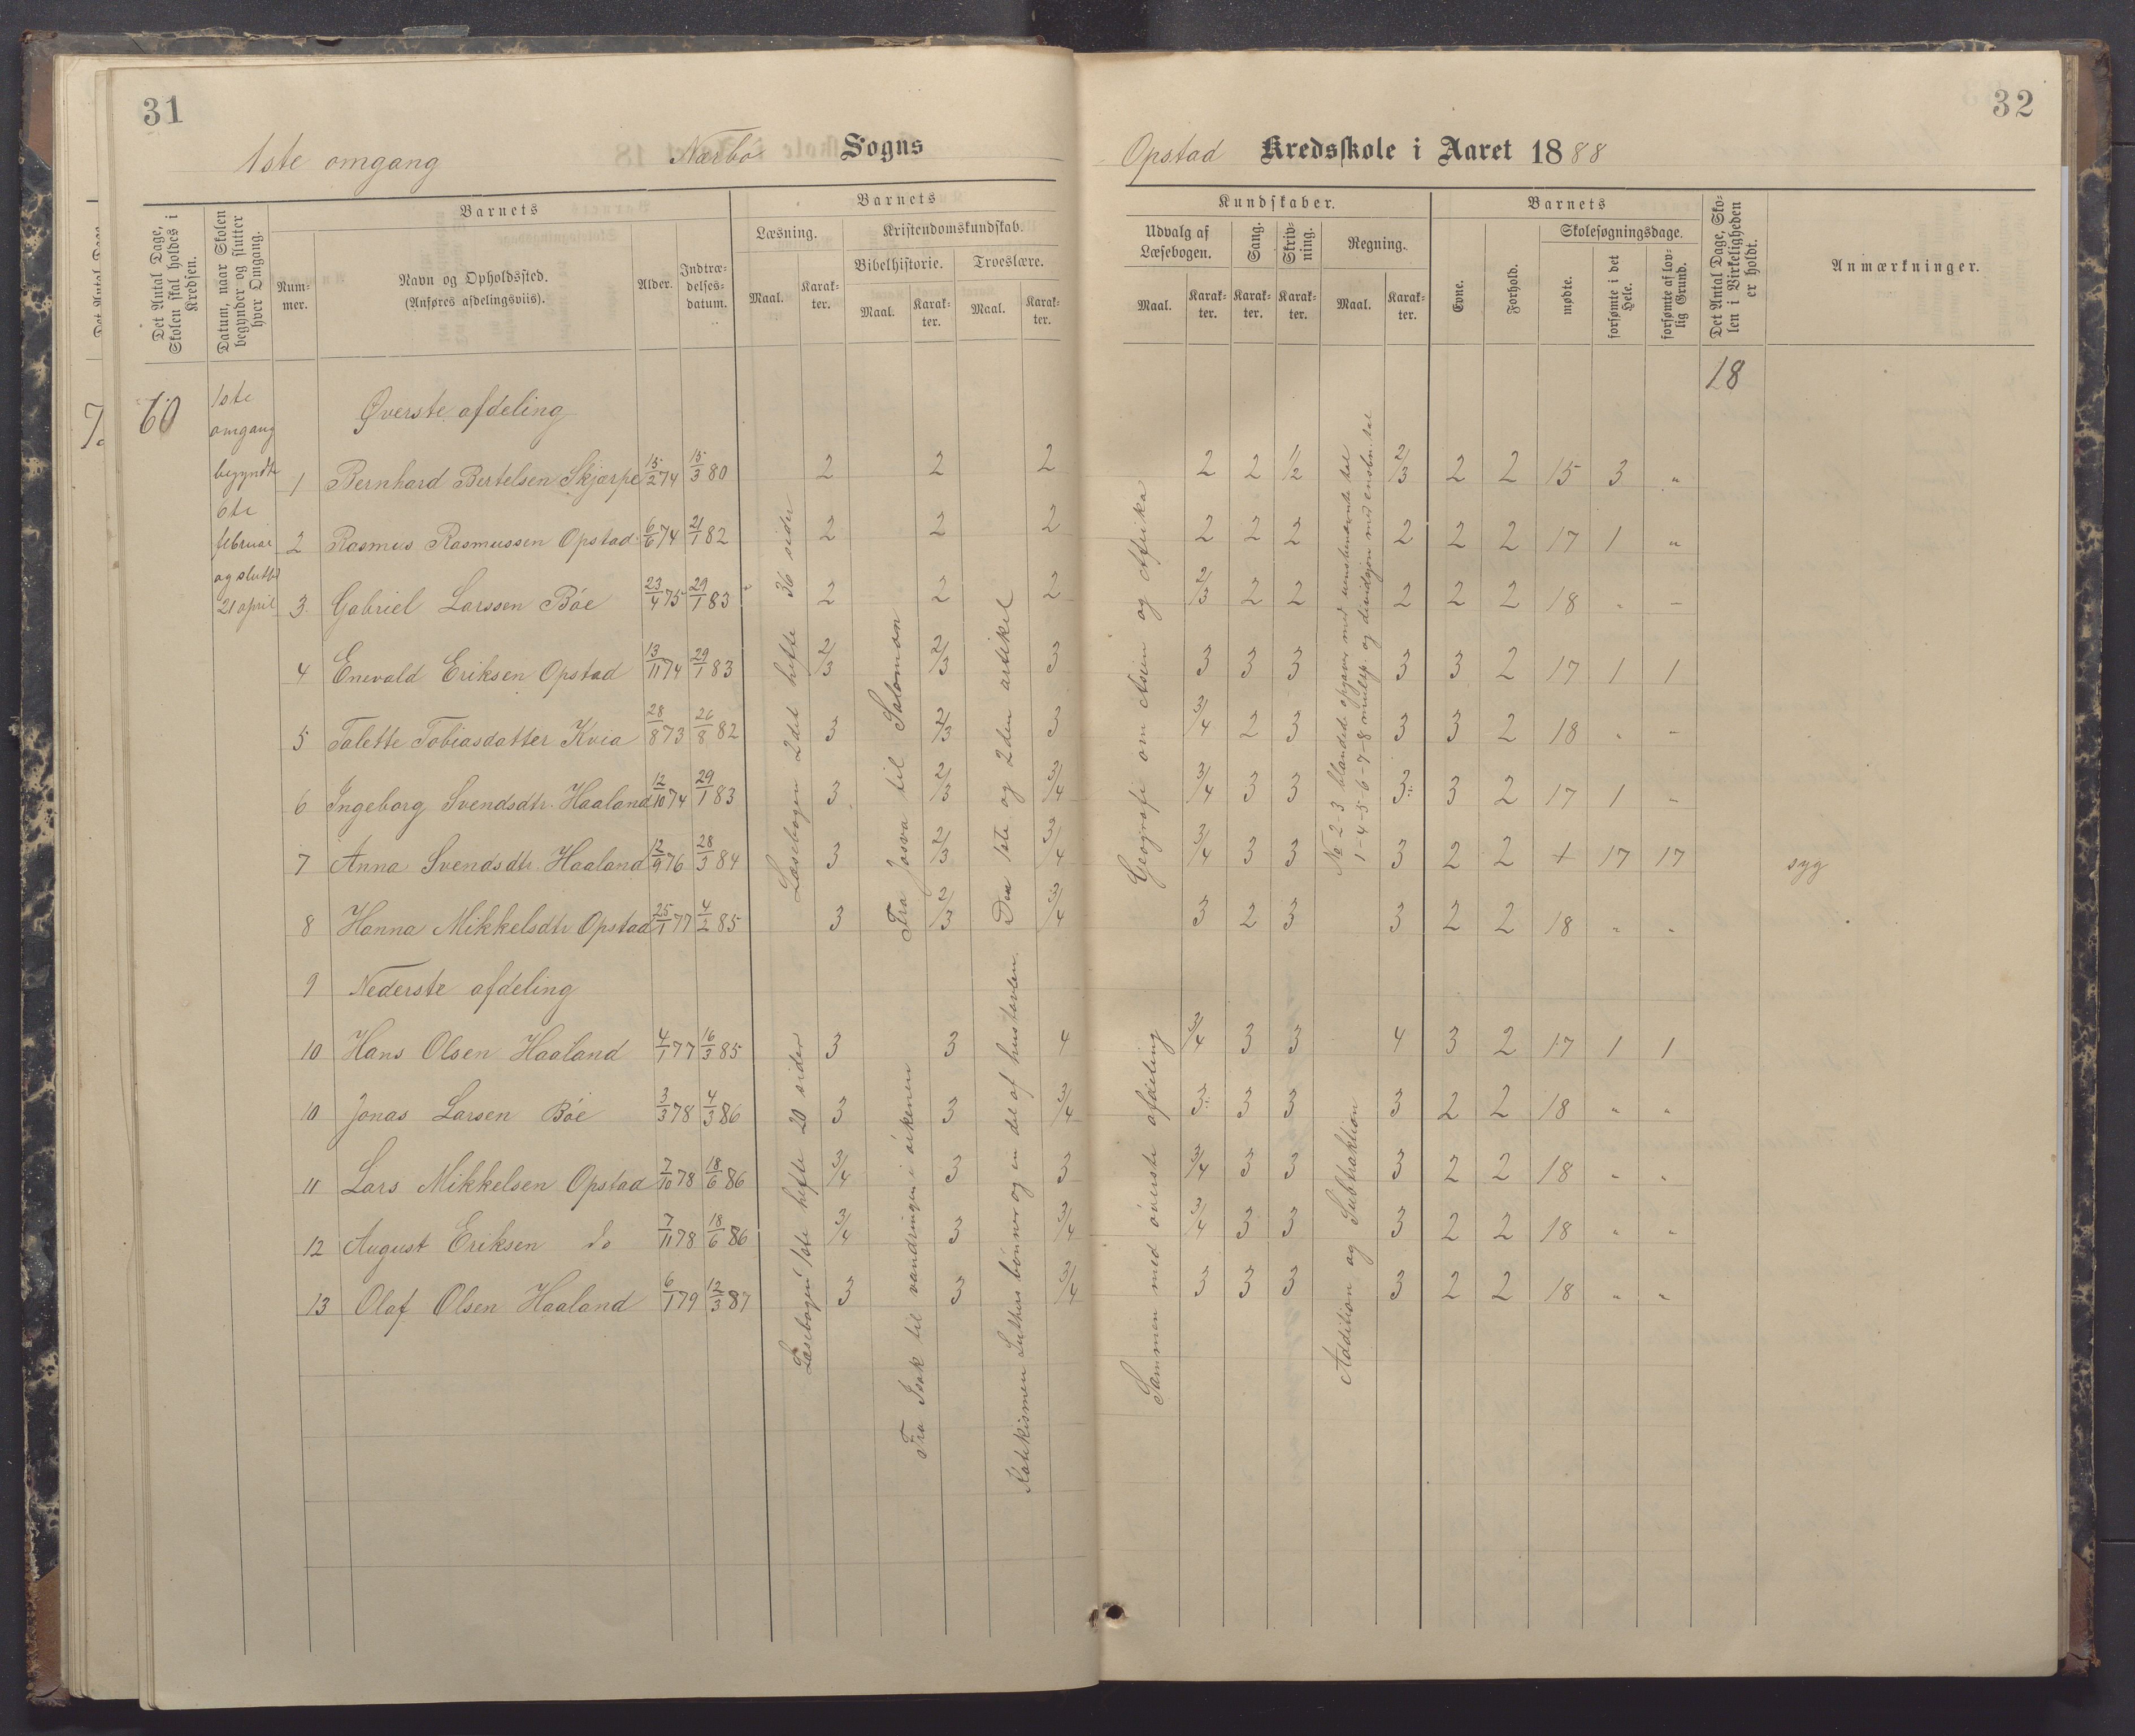 31
32
1ste omgang Nærbø Sogns
Opstad Kredsskole i Aaret 1888
Det Antal Dage, Skolen skal holdes i Kredsen.
Datum, naar Skolen begynder og slutter hver Omgang.
Barnets
Nummer.
Navn og Opholdssted.
(Anføres afdelingsviis).
Alder.
Indtrædelses-datum.
Barnets
Læsning.
Maal.
Karakter.
Kristendomskundskab.
Bibelhistorie.
Maal.
Karakter.
Troeslære.
Maal.
Karakter.
Kundskaber.
Udvalg af Læsebogen.
Maal.
Karakter.
Sang.
Karakter.
Skrivning.
Karakter.
Regning.
Maal.
Karakter.
Barnets
Evne.
Forhold.
Skolesøgningsdage.
mødte.
forsømte i det Hele.
forsømte af lovlig Grund.
Det Antal Dage, Skolen i Virkeligheden er holdt.
Anmærkninger.
60
1ste omgang begyndte 6te februar og sluttet 21 april
18
Øverste afdeling
1 Bernhard Bertelsen Skjærpe 15/2 74 15/3 80 2 2 2 2 2 1/2 2/3 2 2 15 3 "
2 Rasmus Rasmussen Opstad 6/6 74 21/1 82 2 2 2 2 2 2 2 2 2 17 1 "
3 Gabriel Larssen Bøe 23/4 75 29/1 83 2 2 2 2/3 2 2 2 2 2 18 " –
4 Enevald Eriksen Opstad 13/11 74 29/1 83 2/3 2/3 3 3 3 3 3 3 2 17 1 1
5 Talette Tobiasdatter Kvia 28/8 73 26/8 82 3 2/3 3 3/4 2 3 3 3 2 18 " "
6 Ingeborg Svendsdtr. Haaland 12/10 74 29/1 83 3 2/3 3/4 3/4 3 3 3 3 2 17 1 "
7 Anna Svendsdtr. Haaland 12/9 76 28/3 84 3 2/3 3/4 3/4 3 3 3 2 2 + 17 17 syg
8 Hanna Mikkelsdtr Opstad 25/1 77 4/2 85 3 2/3 3/4 3 2 3 3 2 2 18 " "
Læsebogen 2det hefte 36 sider
Fra Josva til Salomon
Den 1ste og 2den artikel
Geografi om Asien og Afrika
No 2-3 blandede opgaver med uensbenævnte tal
1-4-5-6-7-8 multip. og dividsjon med ensbn. tal
9 Nederste afdeling
10 Hans Olsen Haaland 4/1 77 16/3 85 3 3 4 3/4 3 3 4 3 2 17 1 1
10 Jonas Larsen Bøe 3/3 78 4/3 86 3 3 3/4 3 3 3 3 2 2 18 " "
11 Lars Mikkelsen Opstad 7/10 78 18/6 86 3/4 3 3 3/4 3 3 3 2 2 18 " "
12 August Eriksen do 7/11 78 18/6 86 3/4 3 3/4 3/4 3 3 3 2 2 18 " "
13 Olaf Olsen Haaland 6/1 79 12/3 87 3 3 3/4 3 3 3 3 2 2 18 " "
Læsebogen 1ste hefte 20 sider
Fra Isak til vandringen i ørkenen
Katekismen Luthers bønner og en del af hustavlen.
Sammen med øverste afdeling
Addition og Subtraktion